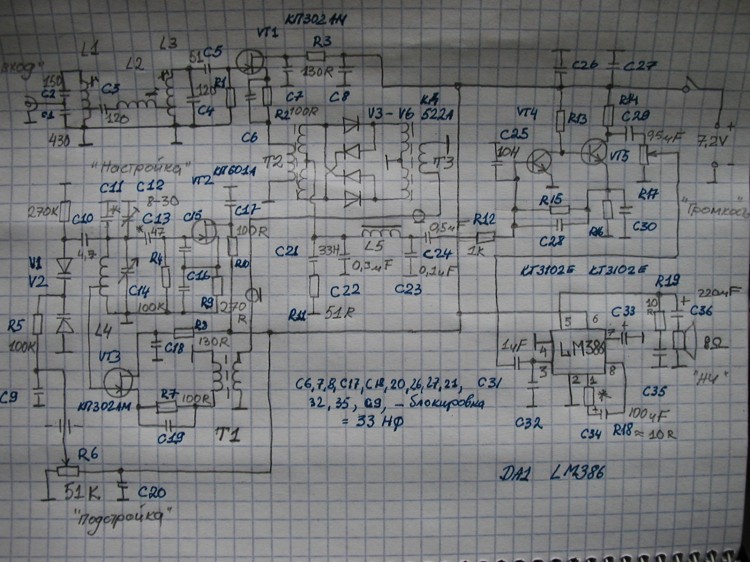 VT1
КП302АМ
L1
L3
L2
51
C5
R3
130R
C26
C27
150
C2
C1
430
C3
120
120
C4
R1
C7
C8
R2
100R
V3-V6
КД
522А
VT4
R13
R14
C29
95мF
7,2V
C6
T2
T3
C25
10Н
VT5
"Настройка"
VT2
КП601А
270К
C10
C11
C12
8-30
C13
47
C15
C17
100R
4,7
R15
R17
C28
C30
"Громкость
C21
33Н
L5
0,5мF
R12
1к
C24
C22
0,3мF
C23
0,1мF
V1
V2
R4
C16
R9
270
R
C14
100К
КТ3102Е
КТ3102Е
R5
100К
L4
VT3
КП302АМ
C18
R8
130R
R7
100R
C19
T1
R11
51R
R19
10
R
220мF
C36
8Ω
"НЧ"
C33
5
6
7
LM386
4
3
2
1
8
1мF
C32
C34
R18
≈10R
C35
100мF
C9
C6,7,8, C17, C18, 20, 26, 27, 21, C31
32, 35, C9, – блокировка
= 33 НФ
R6
51К
C20
"Подстройка"
DA1 LM386